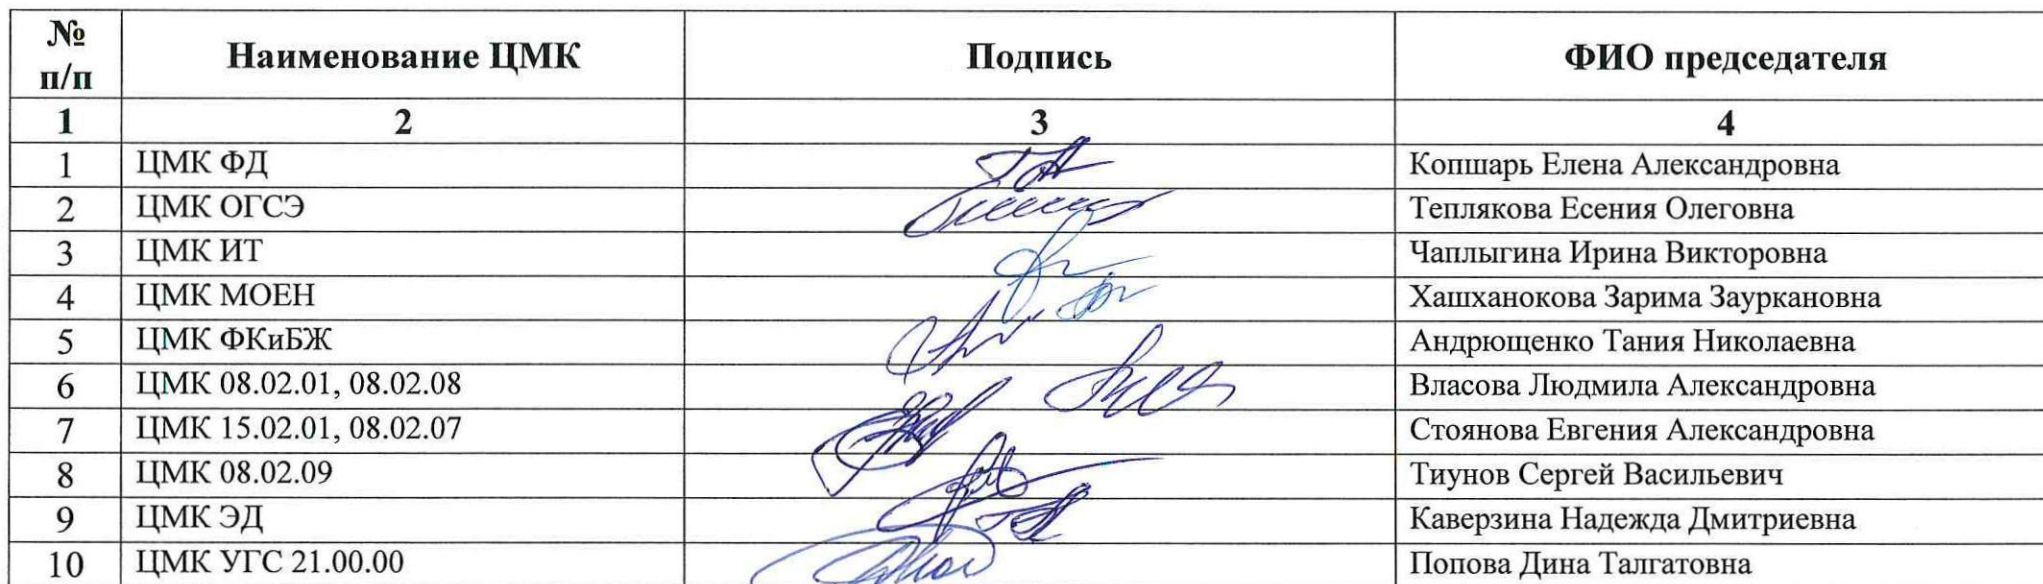 № п/п Наименование ЦМК Подпись ФИО председателя
1 2 3 4
1 ЦМК ФД Копшарь Елена Александровна
2 ЦМК ОГСЭ Теплякова Есения Олеговна
3 ЦМК ИТ Чаплыгина Ирина Викторовна
4 ЦМК МОЕН Хашханокова Зарима Заурkanовна
5 ЦМК ФКиБЖ Андрющенко Тания Николаевна
6 ЦМК 08.02.01, 08.02.08 Власова Людмила Александровна
7 ЦМК 15.02.01, 08.02.07 Стоянова Евгения Александровна
8 ЦМК 08.02.09 Тиунов Сергей Васильевич
9 ЦМК ЭД Каверзина Надежда Дмитриевна
10 ЦМК УГС 21.00.00 Попова Дина Талгатовна